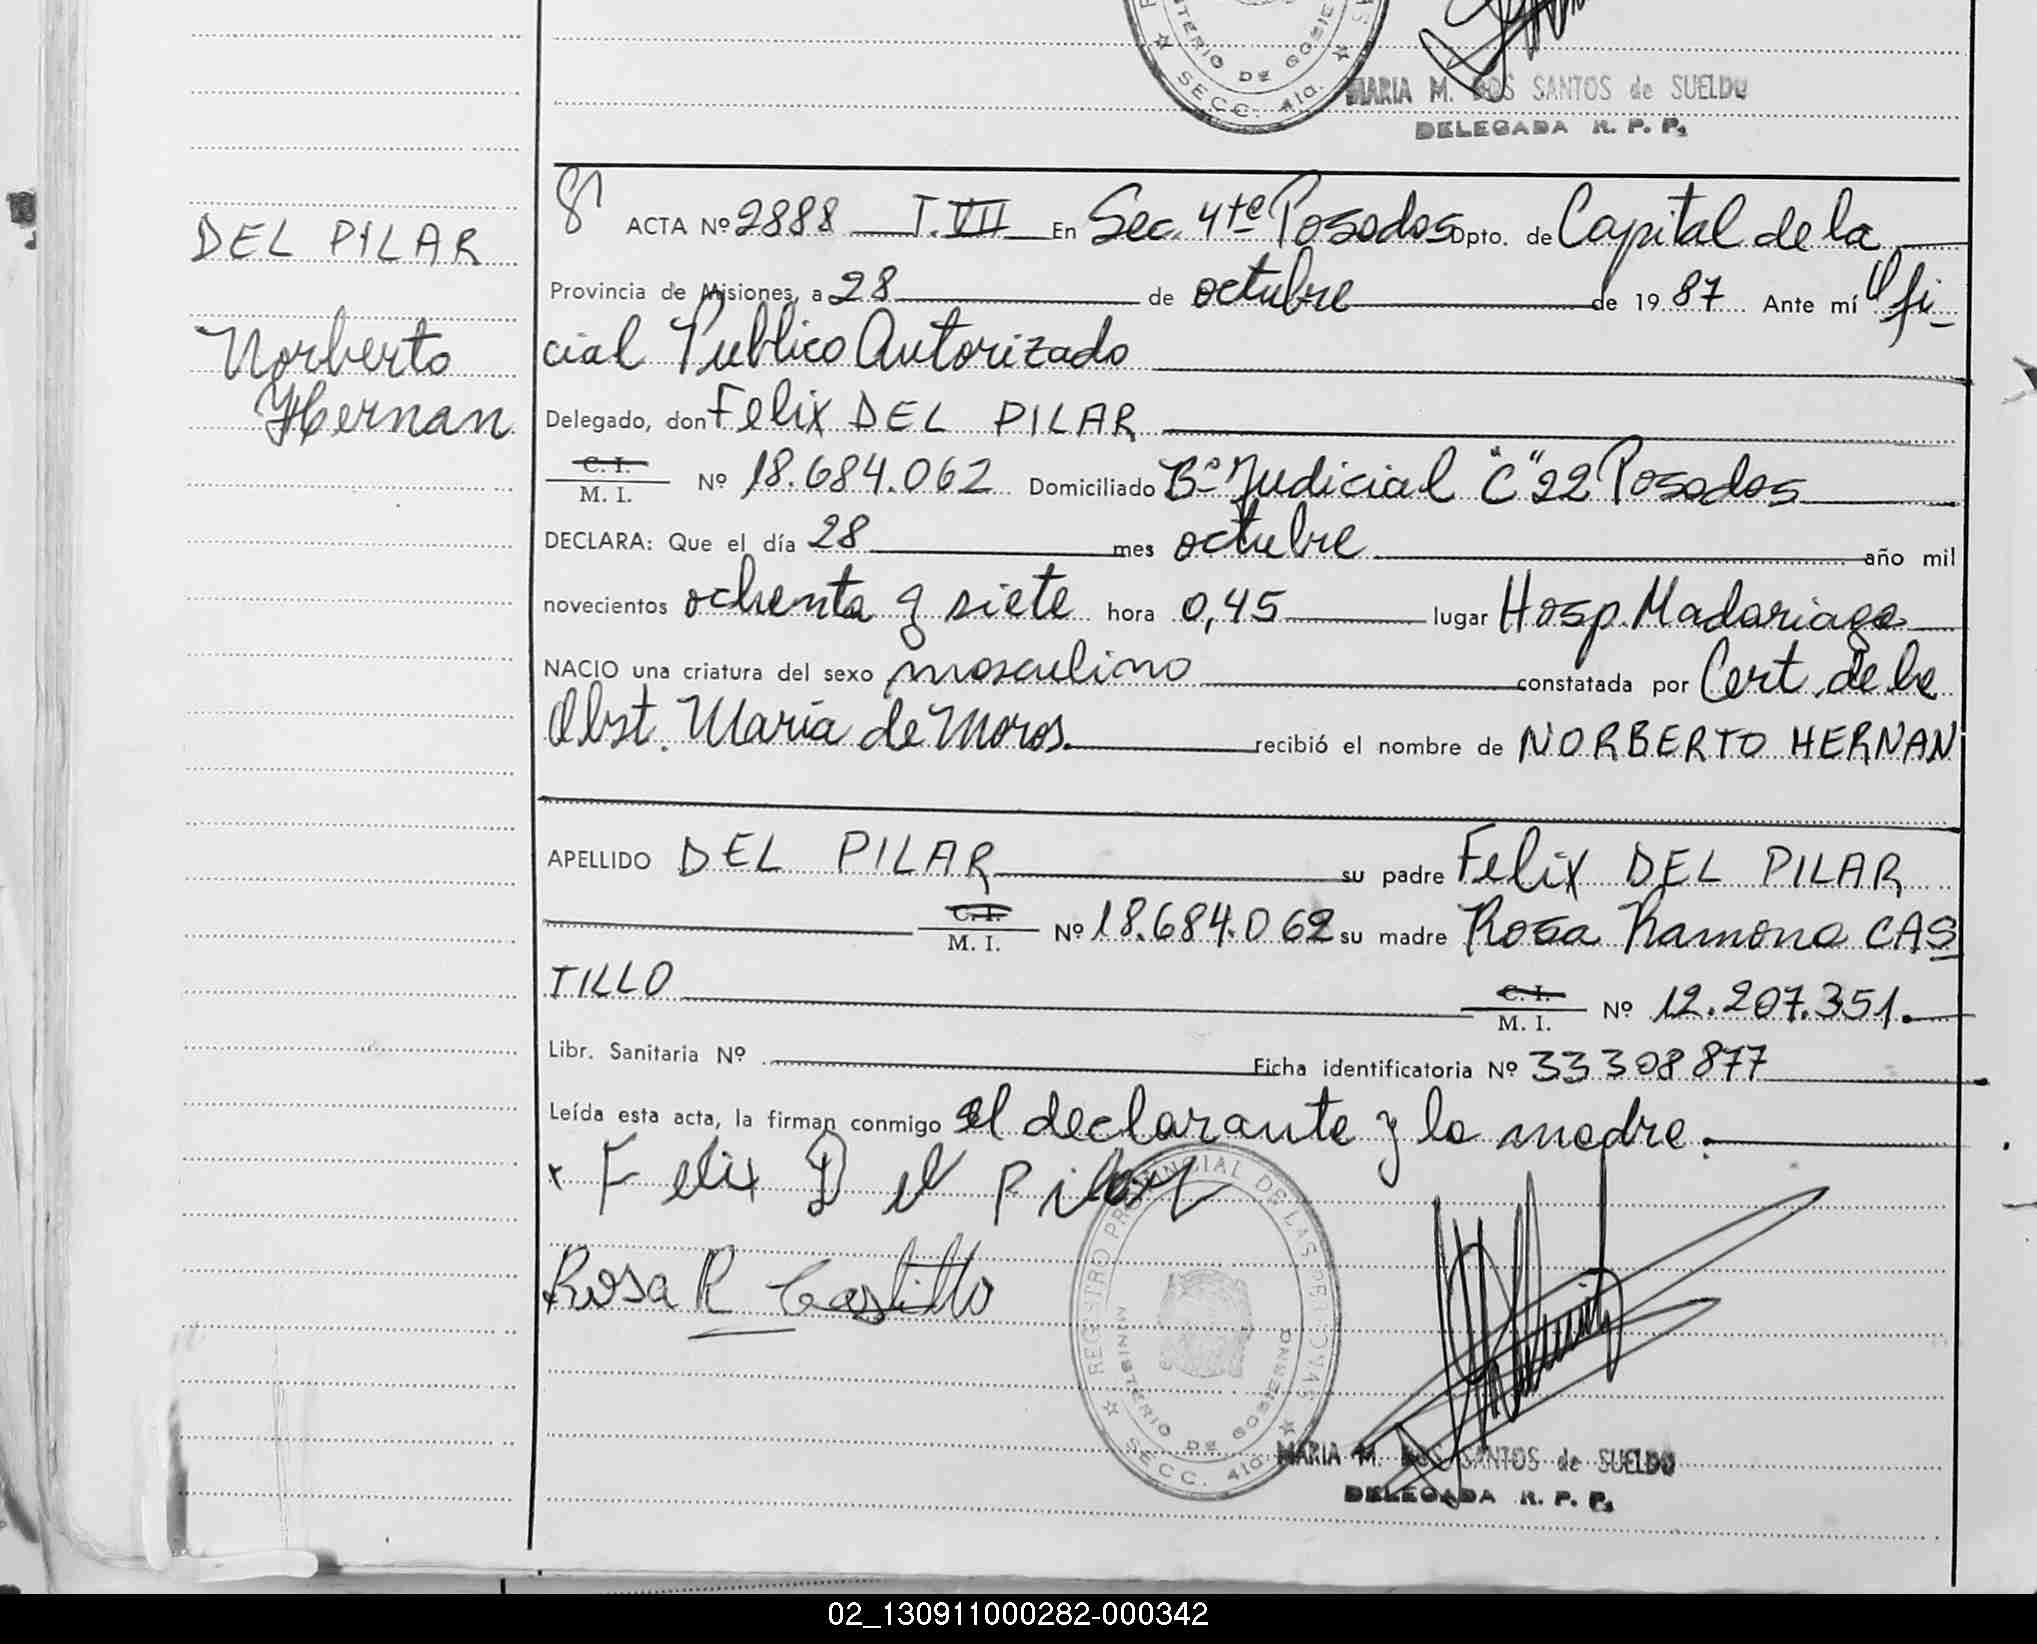 MINISTERIO DE GOBIERNO
☆ SECC. 4ta. ☆
MARIA M. DOS SANTOS de SUELDO
DELEGADA R. P. P.
DEL PILAR
Norberto
Hernan
ACTA Nº 2888 T. VII En Sec. 4ta Posadas Dpto. de Capital de la
Provincia de Misiones, a 28 de octubre de 1987 Ante mí Ofi-
cial Publico Autorizado
Delegado, don Felix DEL PILAR
C. I.
M. I. Nº 18.684.062 Domiciliado Bº Judicial "C" 22 Posadas
DECLARA: Que el día 28 mes octubre año mil
novecientos ochenta y siete hora 0,45 lugar Hosp. Madariaga
NACIO una criatura del sexo masculino constatada por Cert. de la
Obst. Maria de Moros. recibió el nombre de NORBERTO HERNAN
APELLIDO DEL PILAR su padre Felix DEL PILAR
C. I.
M. I. Nº 18.684.062 su madre Rosa Ramona CAS
TILLO C. I.
M. I. Nº 12.207.351.
Libr. Sanitaria Nº Ficha identificatoria Nº 33308877
Leída esta acta, la firman conmigo el declarante y la madre.
Felix Del Pilar
Rosa R Castillo
REGISTRO PROVINCIAL DE LAS PERSONAS
MINISTERIO DE GOBIERNO
☆ SECC. 4ta. ☆
MARIA M. DOS SANTOS de SUELDO
DELEGADA R. P. P.
02_130911000282-000342